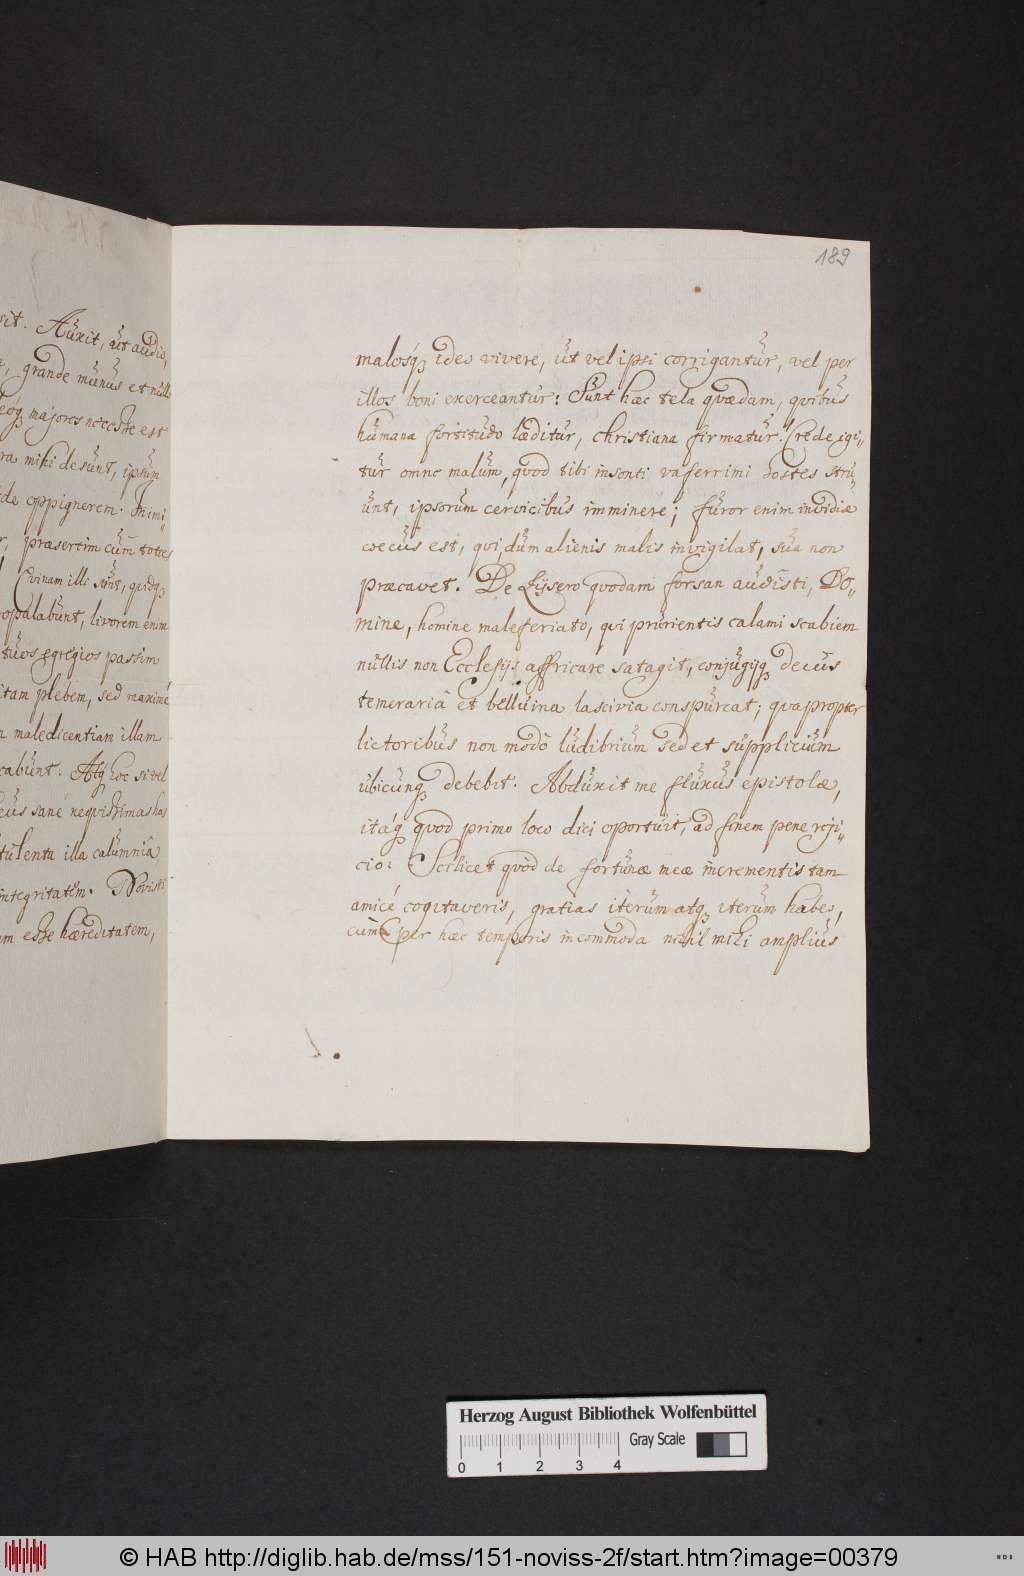 sit. Auxit, ut audis,
grande munus et null
majores necesse est
ra mihi desunt, ipsum
de oppignerem. Inimi-
praesertim cum toties
Evinam illi sunt, quidq3
opalabunt, livorem enim
tuos egregios passim
itam plebem, sed maximé
maledicentiam illam
cabunt. Atq3 hoc si vel
cus sané neqvissimas has
tulenta illa calumniâ
integritatem. Novisti
m esse haereditatem,
189
malosq́3 ides vivere, ut vel ipsi corrigantur, vel per
illos boni exerceantur: Sunt haec tela qvaedam, qvibus
humana fortitudo laeditur, christiana firmatur. Crede igi-
tur omne malum, quod tibi insonti vaferrimi hostes stru-
unt, ipsorum cervicibus imminere; furor enim invidiae
coecus est, qvi, dum alienis malis invigilat, sua non
praecavet. De Lysero quodam forsan audisti, Do-
mine, homine maleferiato, qvi prurientis calami scabiem
nullis non Ecclesijs affricare satagit, conjugijq3 decus
temerariâ et belluina lascivia conspurcat; qvapropter
lictoribus non modò ludibrium sed et supplicium
ubicunq3 debebit. Abduxit me fluxus epistolae,
itáq3 quod primo loco dici oportuit, ad finem pene reji-
cio: Scilicet quòd de fortunae meae incrementis tam
amicé cogitaveris, gratias iterum atq3 iterum habeo,
cùm per haec temporis incommoda nihil mihi amplius
Herzog August Bibliothek Wolfenbüttel
Gray Scale
0 1 2 3 4
© HAB http://diglib.hab.de/mss/151-noviss-2f/start.htm?image=00379